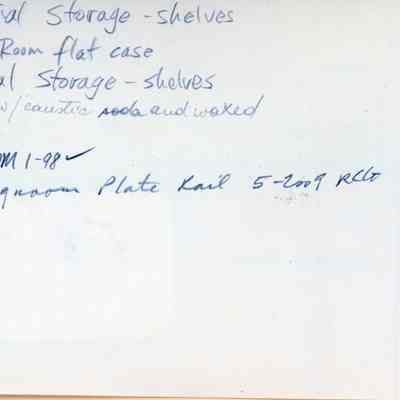 ial Storage - shelves
Room flat case
al Storage - shelves
w/caustic soda and waxed
M 1-98 ✓
groom Plate Rail 5-2009 RCG